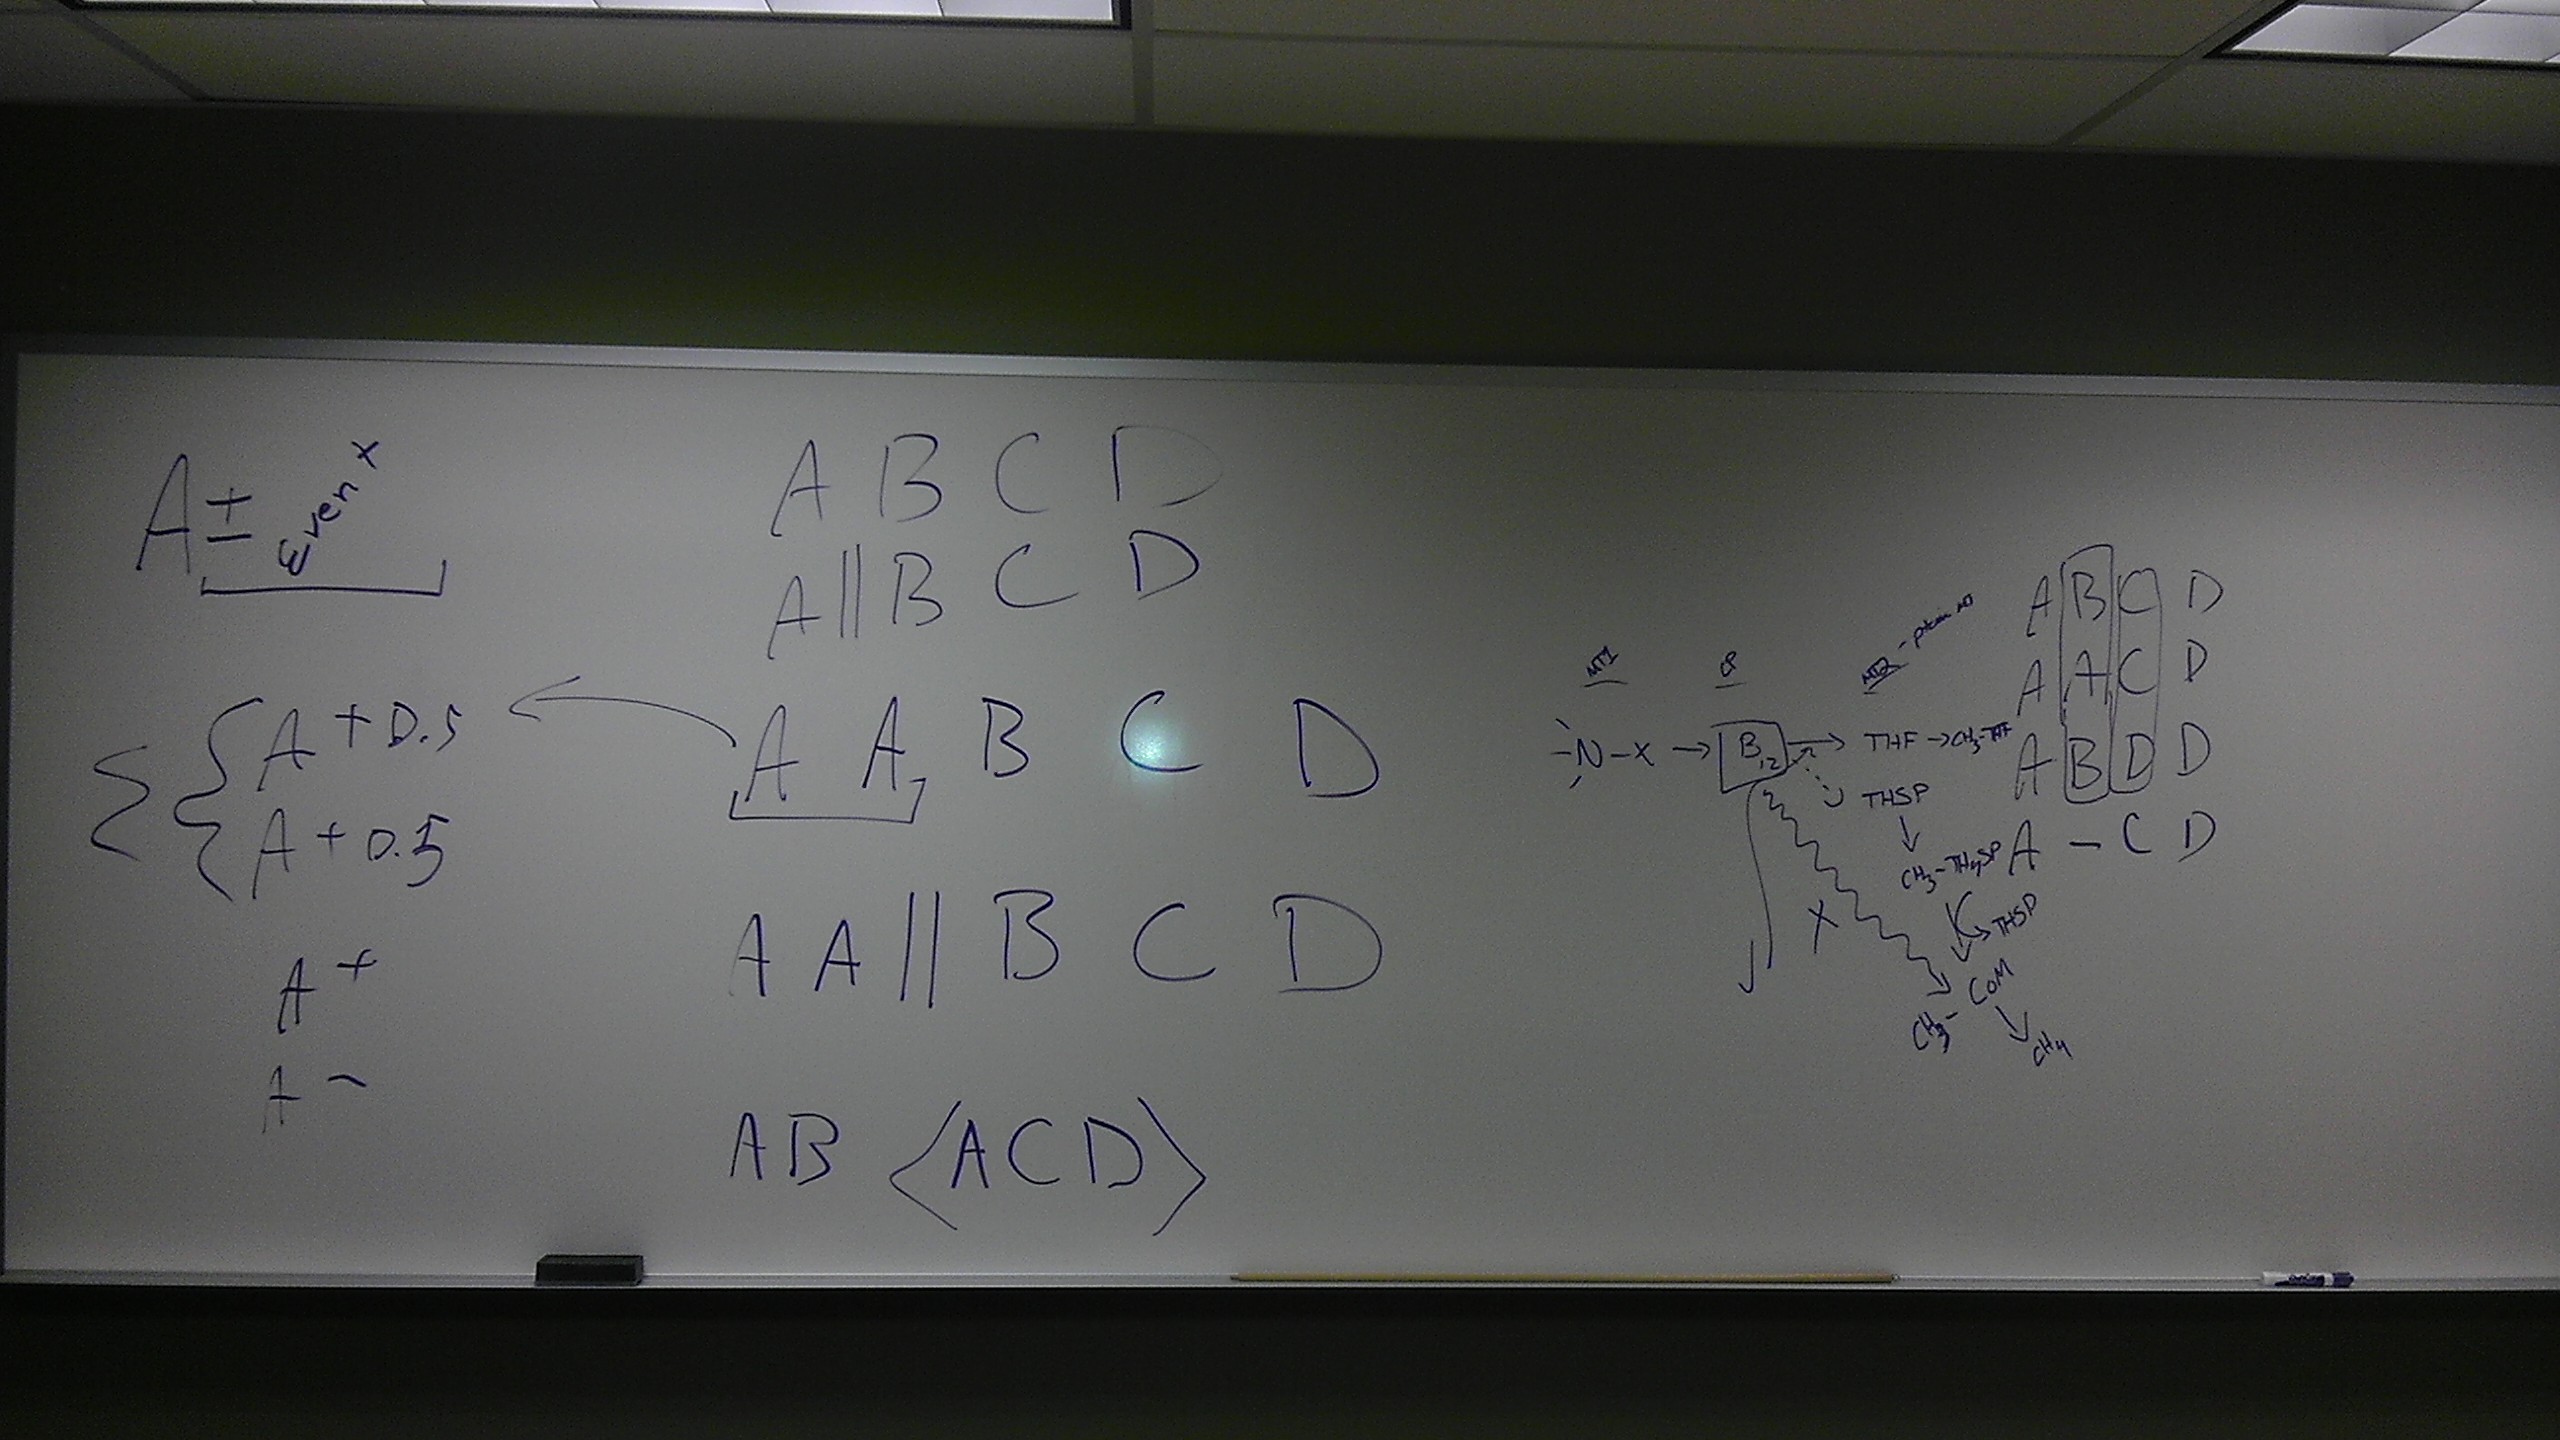 A ± Even x
A + 0.5
A + 0.5
A +
A -
A B C D
A || B C D
A A B C D
A A || B C D
A B < A C D >
MT1
CP
MT2 -
-N-X → B12 → THF → CH3-THF
THSP
CH3-TH4SP
THSP
CoM
CH3-
CH4
X
A B C D
A A C D
A B D D
A - C D